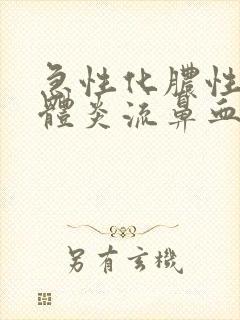 急性化膿性
體炎流鼻血
另有玄機